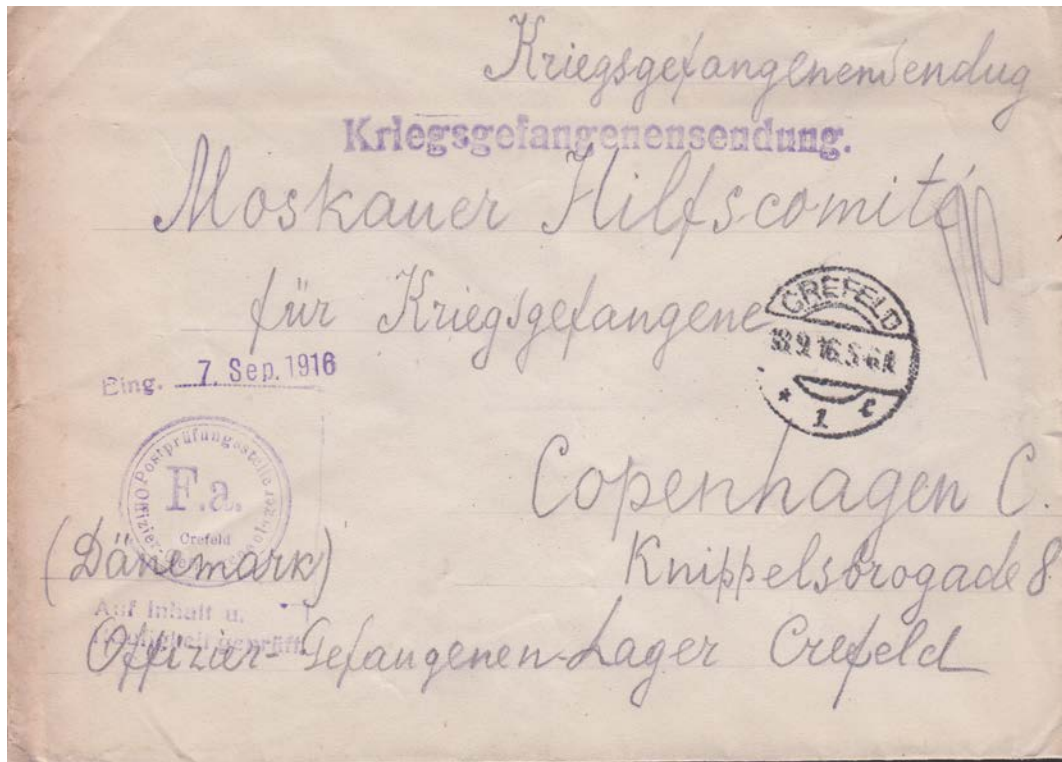 Kriegsgefangenensendug
Kriegsgefangenensendung.
Moskauer Hilfscomité
für Kriegsgefangene
CREFELD
18.9.16.5-6N
* 1 c
Eing. 7. Sep. 1916
Postprüfungsstelle
F.a.
Crefeld
Copenhagen C.
(Dänemark)
Knippelsbrogade 8
Auf Inhalt u.
geprüft.
Offizier-Gefangenen-Lager Crefeld